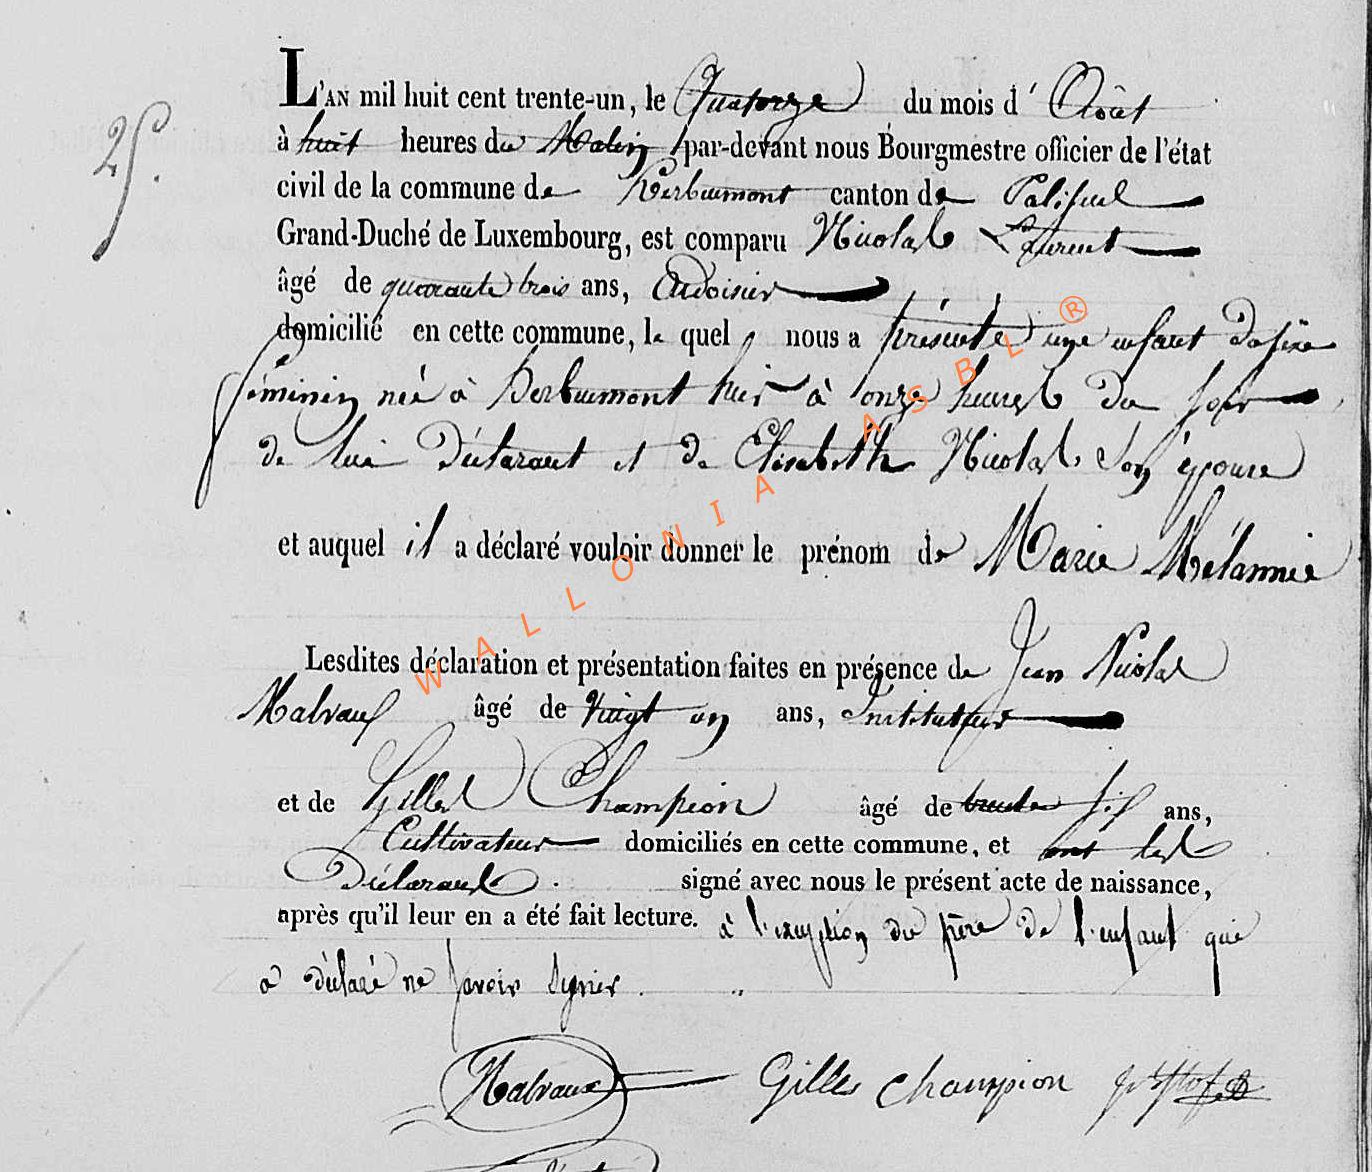 25.
L'AN mil huit cent trente-un, le Quatorze du mois d' Août
à huit heures du Matin par-devant nous Bourgmestre officier de l'état
civil de la commune de Herbeumont canton de Paliseul
Grand-Duché de Luxembourg, est comparu Nicolas Laurent
âgé de quarante trois ans, Ardoisier
domicilié en cette commune, le quel nous a présenté une enfant du sexe
féminin née à Herbeumont hier à onze heures du soir
de lui Déclarant et de Elisabeth Nicolas son épouse
et auquel il a déclaré vouloir donner le prénom de Marie Mélannie
Lesdites déclaration et présentation faites en présence de Jean Nicolas
Malvaux âgé de vingt un ans, Instituteur
et de Gilles Champion âgé de trente six ans,
Cultivateur domiciliés en cette commune, et ont les
Déclarants. signé avec nous le présent acte de naissance,
après qu'il leur en a été fait lecture. à l'exception du père de l'enfant qui
a déclaré ne savoir signer.
Malvaux Gilles Champion
WALLONIA ASBL ®